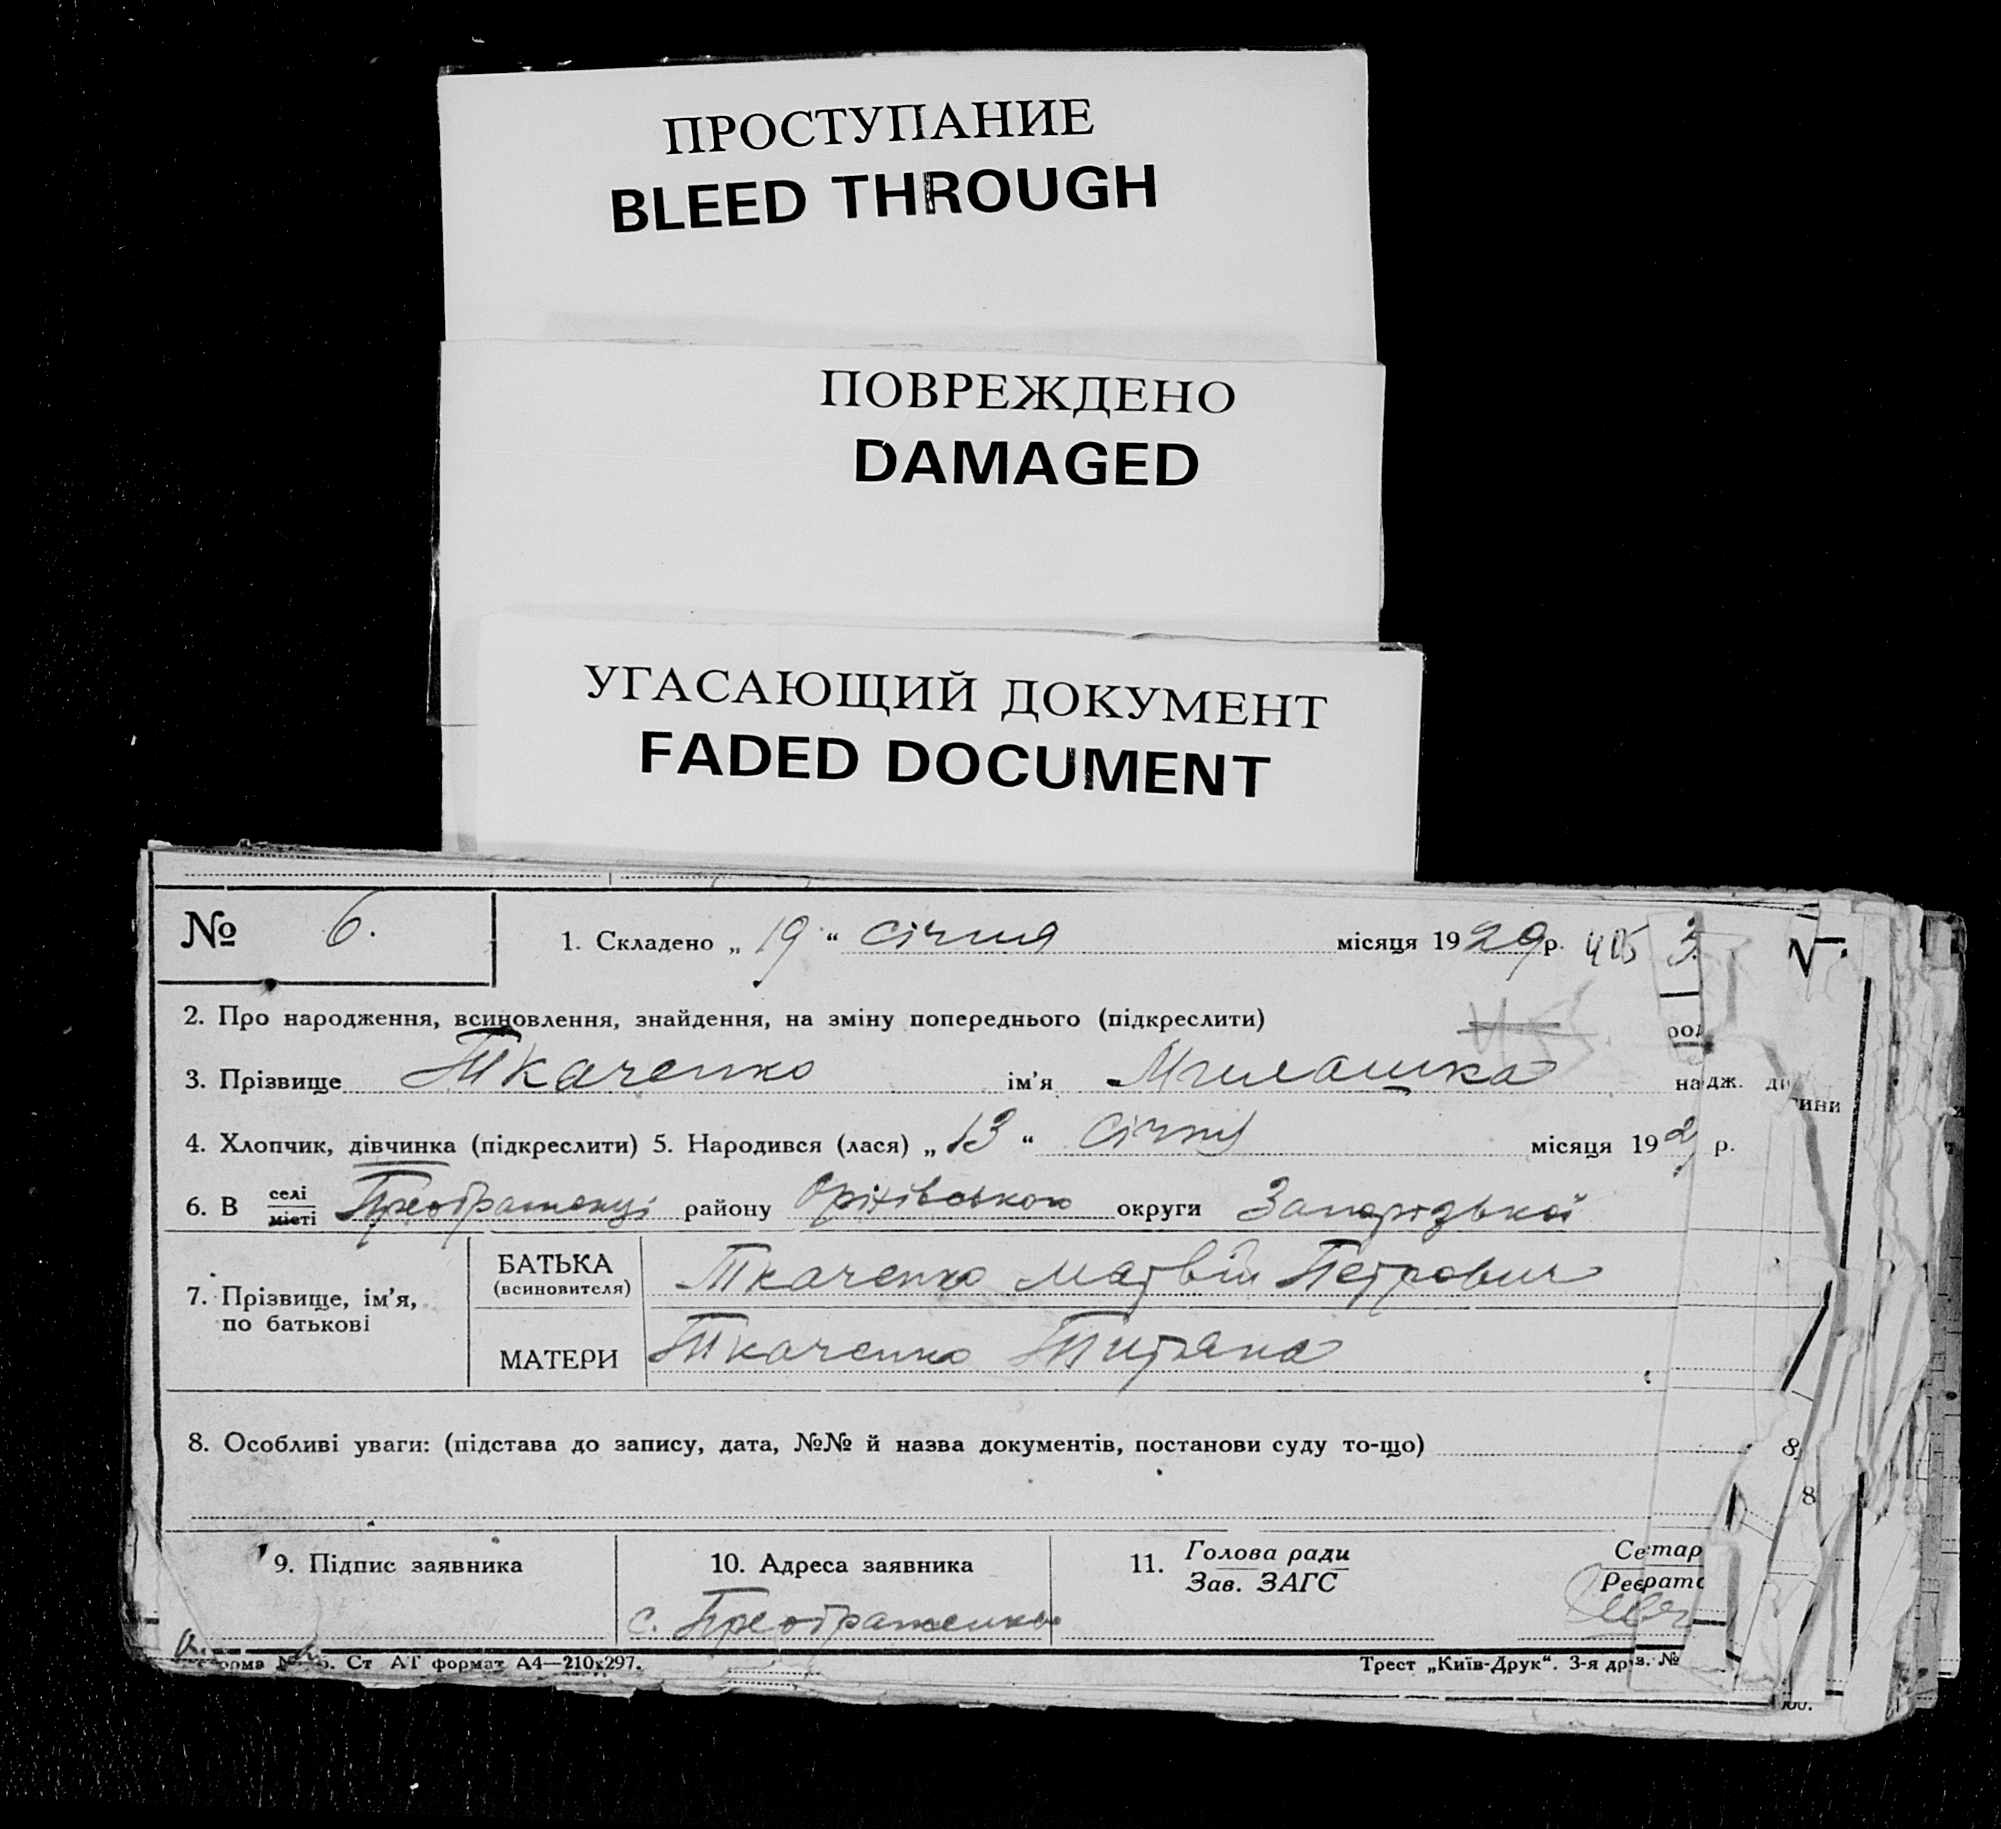 ПРОСТУПАНИЕ
BLEED THROUGH
ПОВРЕЖДЕНО
DAMAGED
УГАСАЮЩИЙ ДОКУМЕНТ
FADED DOCUMENT
№ 6. 1. Складено „ 19 “ січня місяця 1929 р.
2. Про народження, всиновлення, знайдення, на зміну попереднього (підкреслити)
3. Прізвище Ткаченко ім’я
4. Хлопчик, дівчинка (підкреслити) 5. Народився (лася) „ 13 “ січня місяця 192 р.
6. В селі місті Преображенці району Оріхівського округи Запорізької
7. Прізвище, ім’я, по батькові
БАТЬКА (всиновителя) Ткаченко Матвій Петрович
МАТЕРИ Ткаченко Титяна
8. Особливі уваги: (підстава до запису, дата, №№ й назва документів, постанови суду то-що)
9. Підпис заявника 10. Адреса заявника 11. Голова ради
Зав. ЗАГС
с. Преображенка
Ст АТ формат А4—210х297. Трест „Київ-Друк“. 3-я др